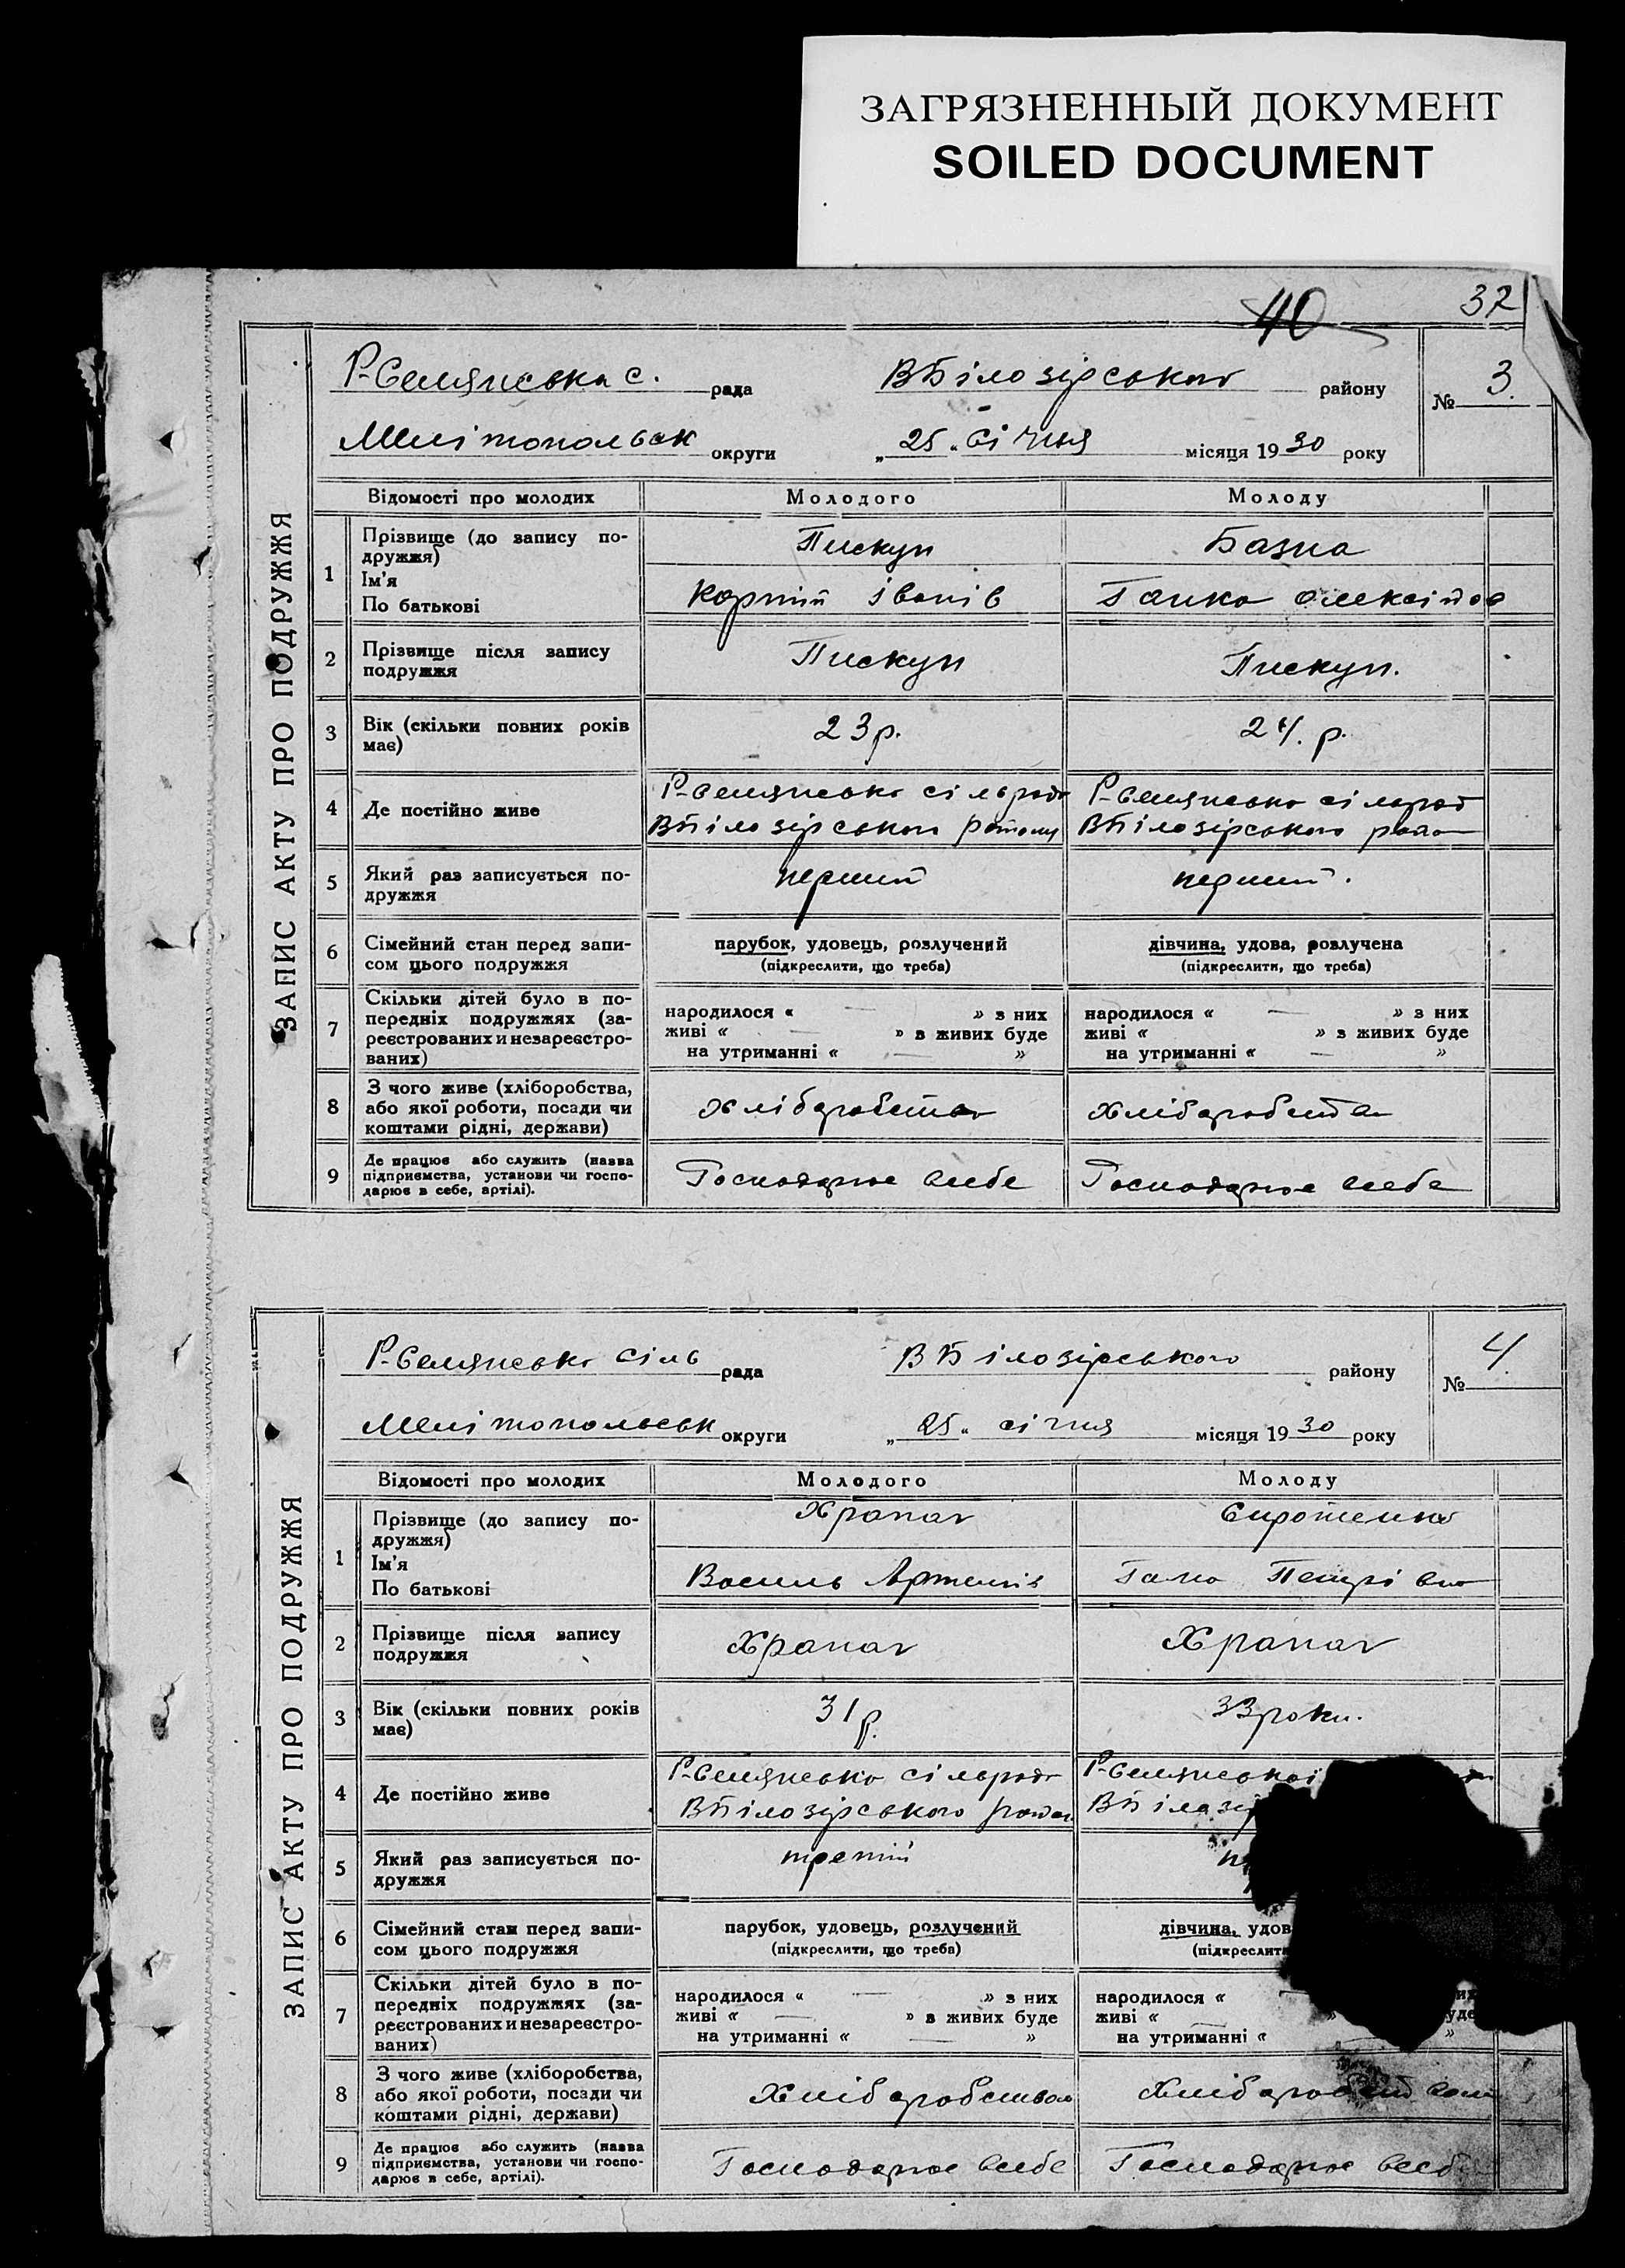 ЗАГРЯЗНЕННЫЙ ДОКУМЕНТ
SOILED DOCUMENT
40
32
ЗАПИС АКТУ ПРО ПОДРУЖЖЯ
Р-Семянівська с. рада ВБілозірського району № 3.
Мелітопольськ округи „25“ січня місяця 1930 року
Відомості про молодих Молодого Молоду
1 Прізвище (до запису по-
дружжя)
Ім'я
По батькові
Пискун Базна
Корній Іванів Ганна Олексіївна
2 Прізвище після запису
подружжя
Пискун Пискун.
3 Вік (скільки повних років
має)
23р. 24. р.
4 Де постійно живе
сільрада сільрад
ВБілозірського району ВБілозірського району
5 Який раз записується по-
дружжя
перший перший.
6 Сімейний стан перед запи-
сом цього подружжя
парубок, удовець, розлучений дівчина, удова, розлучена
(підкреслити, що треба) (підкреслити, що треба)
7 Скільки дітей було в по-
передніх подружжях (за-
реєстрованих и незареєстро-
ваних)
народилося « — » з них народилося « — » з них
живі « — » з живих буде живі « » з живих буде
на утриманні « — » на утриманні « — »
8 З чого живе (хліборобства,
або якої роботи, посади чи
коштами рідні, держави)
хліборобства хліборобства
9 Де працює або служить (назва
підприємства, установи чи госпо-
дарює в себе, артілі).
Господарює всебе Господарює всебе
ЗАПИС АКТУ ПРО ПОДРУЖЖЯ
сіль рада ВБілозірського району № 4.
Мелітопольськ округи „25“ січня місяця 1930 року
Відомості про молодих Молодого Молоду
1 Прізвище (до запису по-
дружжя)
Ім'я
По батькові
Храпач Сиротенко
Василь Артемів Ганна Петрівна
2 Прізвище після запису
подружжя
Храпач Храпач
3 Вік (скільки повних років
має)
31 р. 33 роки.
4 Де постійно живе
сільрада
ВБілозірського району
5 Який раз записується по-
дружжя
третій
6 Сімейний стан перед запи-
сом цього подружжя
парубок, удовець, розлучений дівчина, удов
(підкреслити, що треба) (підкреслити
7 Скільки дітей було в по-
передніх подружжях (за-
реєстрованих и незареєстро-
ваних)
народилося « — » з них народилося « них
живі « — » з живих буде живі « » уде
на утриманні « — » на утриманні « »
8 З чого живе (хліборобства,
або якої роботи, посади чи
коштами рідні, держави)
Хліборобством Хліборобством
9 Де працює або служить (назва
підприємства, установи чи госпо-
дарює в себе, артілі).
Господарює всебе Господарює всеб